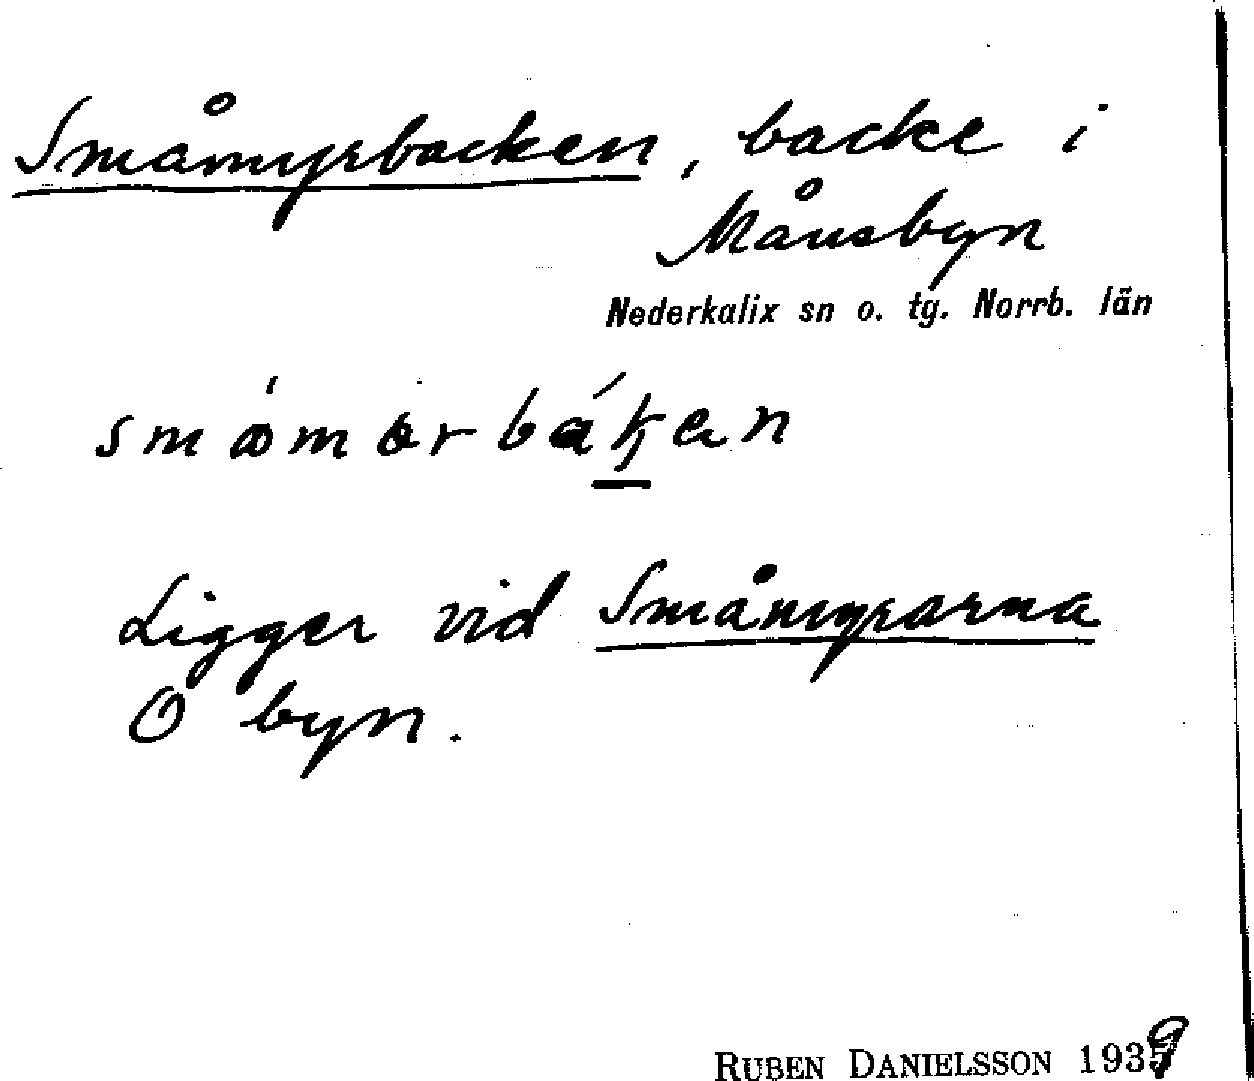 Småmyrbacken, backe i
Månsbyn
Nederkalix sn o. tg. Norrb. län
Ligger vid Småmyrarna
O byn.
RUBEN DANIELSSON 1939